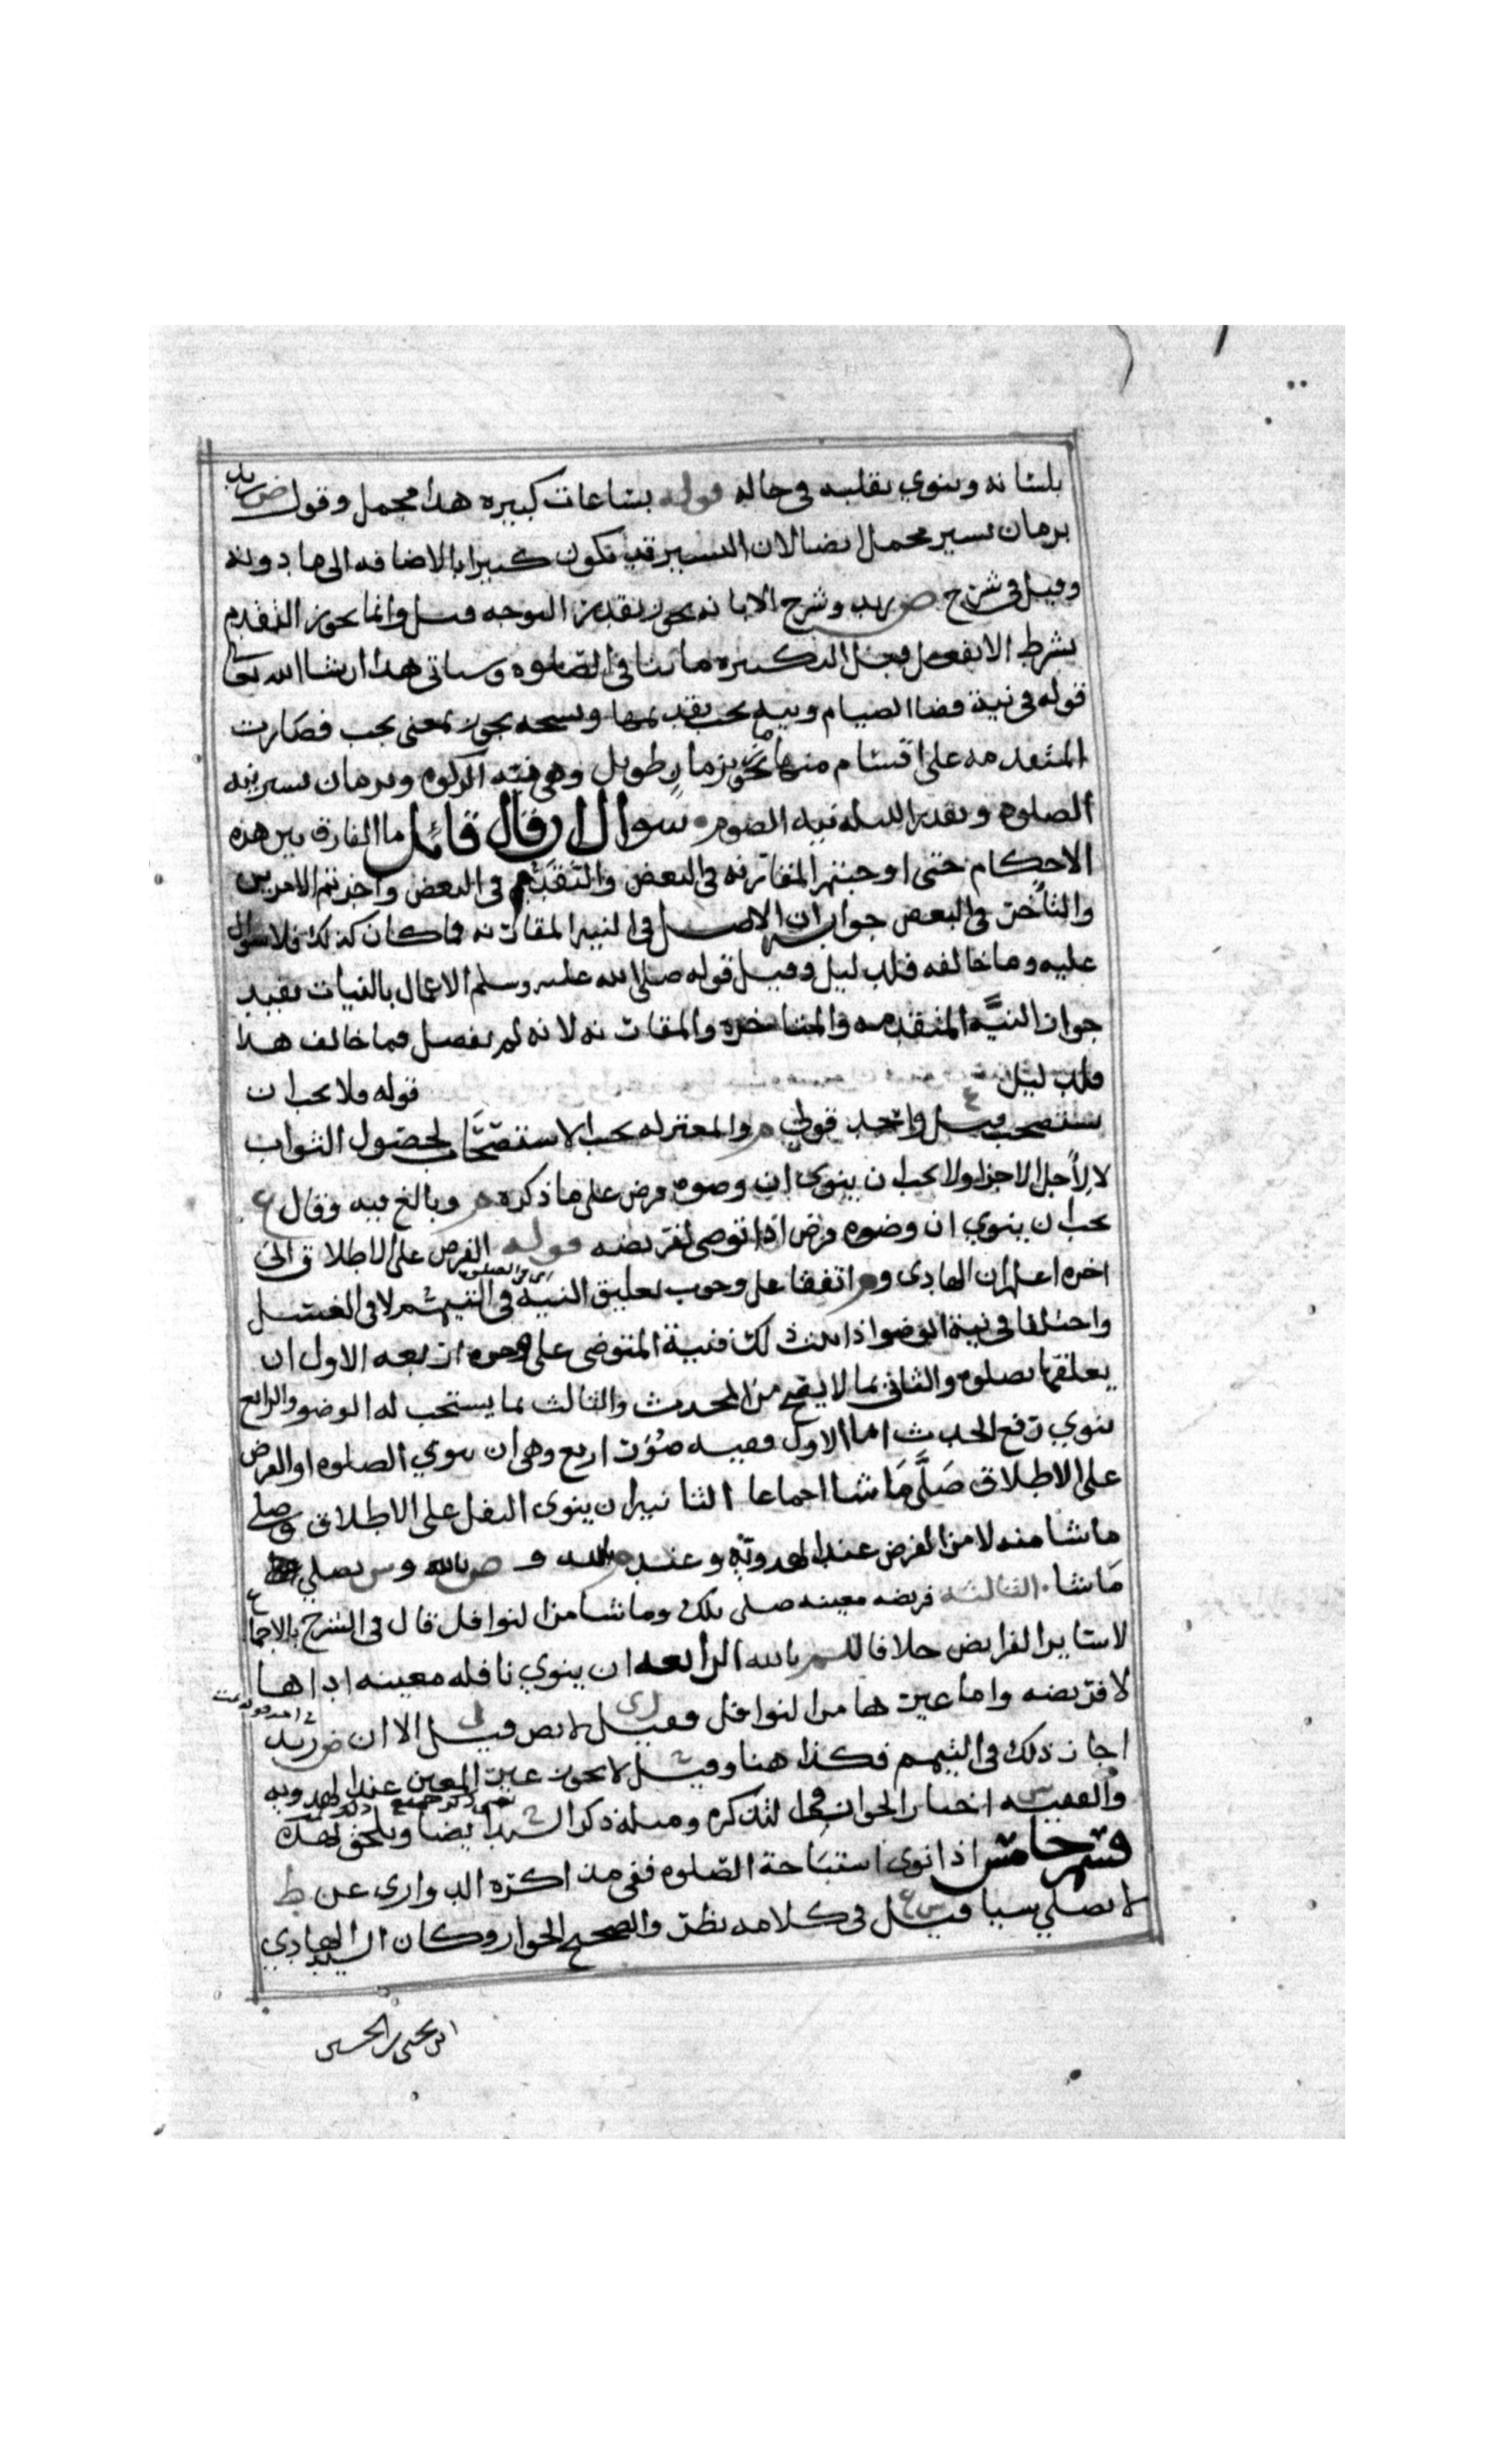 بلسانه وينوي بقلبه في حاله قوله بساعات كبيره هذا مجمل وقول ض زيد
بزمان يسير محمل ايضا لان اليسير قد يكون كبيرا بالاضافه الى ما دونه
وقيل في شرح ض زيد وشرح الابانه يجوز تقديم التوجه قيل وانما يجوز التقديم
بشرط الا يفعل قبل التكبيره ما ينافي الصلوه وسياتي هذا ان شا الله تعا
قوله في نية قضا الصيام ونيه يجب تقديمها ونسخه يجوز بمعنى يجب فصارت
المتقدمه على اقسام منها ما يجوز بزمان طويل وهي نيته الزكوه وبزمان يسير نيه
الصلوه وتقدير الليله نيه الصوم سوال ان قال قائل ما الفارق بين هذه
الاحكام حتى اوجبتم المقارنه في البعض والتقديم في البعض واجزتم الامرين
والتأخر في البعض جوابه ان الاصل في النيه المقارنه فما كان كذلك فلا سوال
عليه وما خالفه فلدليل وقيل قوله صلى الله عليه وسلم الاعمال بالنيات يفيد
جواز النيَّه المتقدمه والمتاخره والمقارنه لانه لم يفصل فما خالف هذا
فلدليل قوله ولا يجب ان
يستصحب قيل واحد قولي م والمعتزله يجب الاستصحاب لحصول الثواب
لا لأجل الاجزا ولا يجب ان ينوي ان وضوه فرض على ما ذكره م وبالغ فيه وقال ع
يجب ان ينوي ان وضوه فرض اذا توضى لفريضه قوله الفرض على الاطلاق الى
اخره اعلم ان الهادي وم اتفقا على وجوب تعليق النيه في التيمم لا في الغسل
واختلفا في نية الوضو اذا ثبت ذلك فنية المتوضى على وجوه اربعه الاول ان
يعلقها بصلوه والثاني بما لا يصح من المحدث والثالث بما يستحب له الوضو والرابع
ينوي رفع الحدث اما الاول ففيه صُوَر اربع وهي ان ينوي الصلوه او الفرض
على الاطلاق صَلَّى مَا شا اجماعا الثانيه ان ينوي النفل على الاطلاق وصلى
ما شا منه لا من الفرض عند الهدويه وعند م بالله و ض بالله وس يصلي
مَا شا الثالثه فريضه معينه صلى تلك وما شا من النوافل قال في الشرح بالاجماع
لا ساير الفرايض خلافا للم بالله الرابعه ان ينوي نافله معينه اداها
لا فريضه واما غيرها من النوافل فقيل لا يصح قيل الا ان ض زيد
اجاز ذلك في التيمم فكذا هنا وقيل لا يجوز غير المعين عند الهدويه
والفقيه س اختار الجواز في التذكره ومثله ذكر السيد ايضا ويلحق بهذه
قسم خامس اذا نوى استباحة الصلوه ففي مذاكره الدواري عن ط
لا يصلي سيا قيل س ع في كلامه نظر والصحيح الجواز وكان السيد الهادي
ابن يحيى بن الحسين